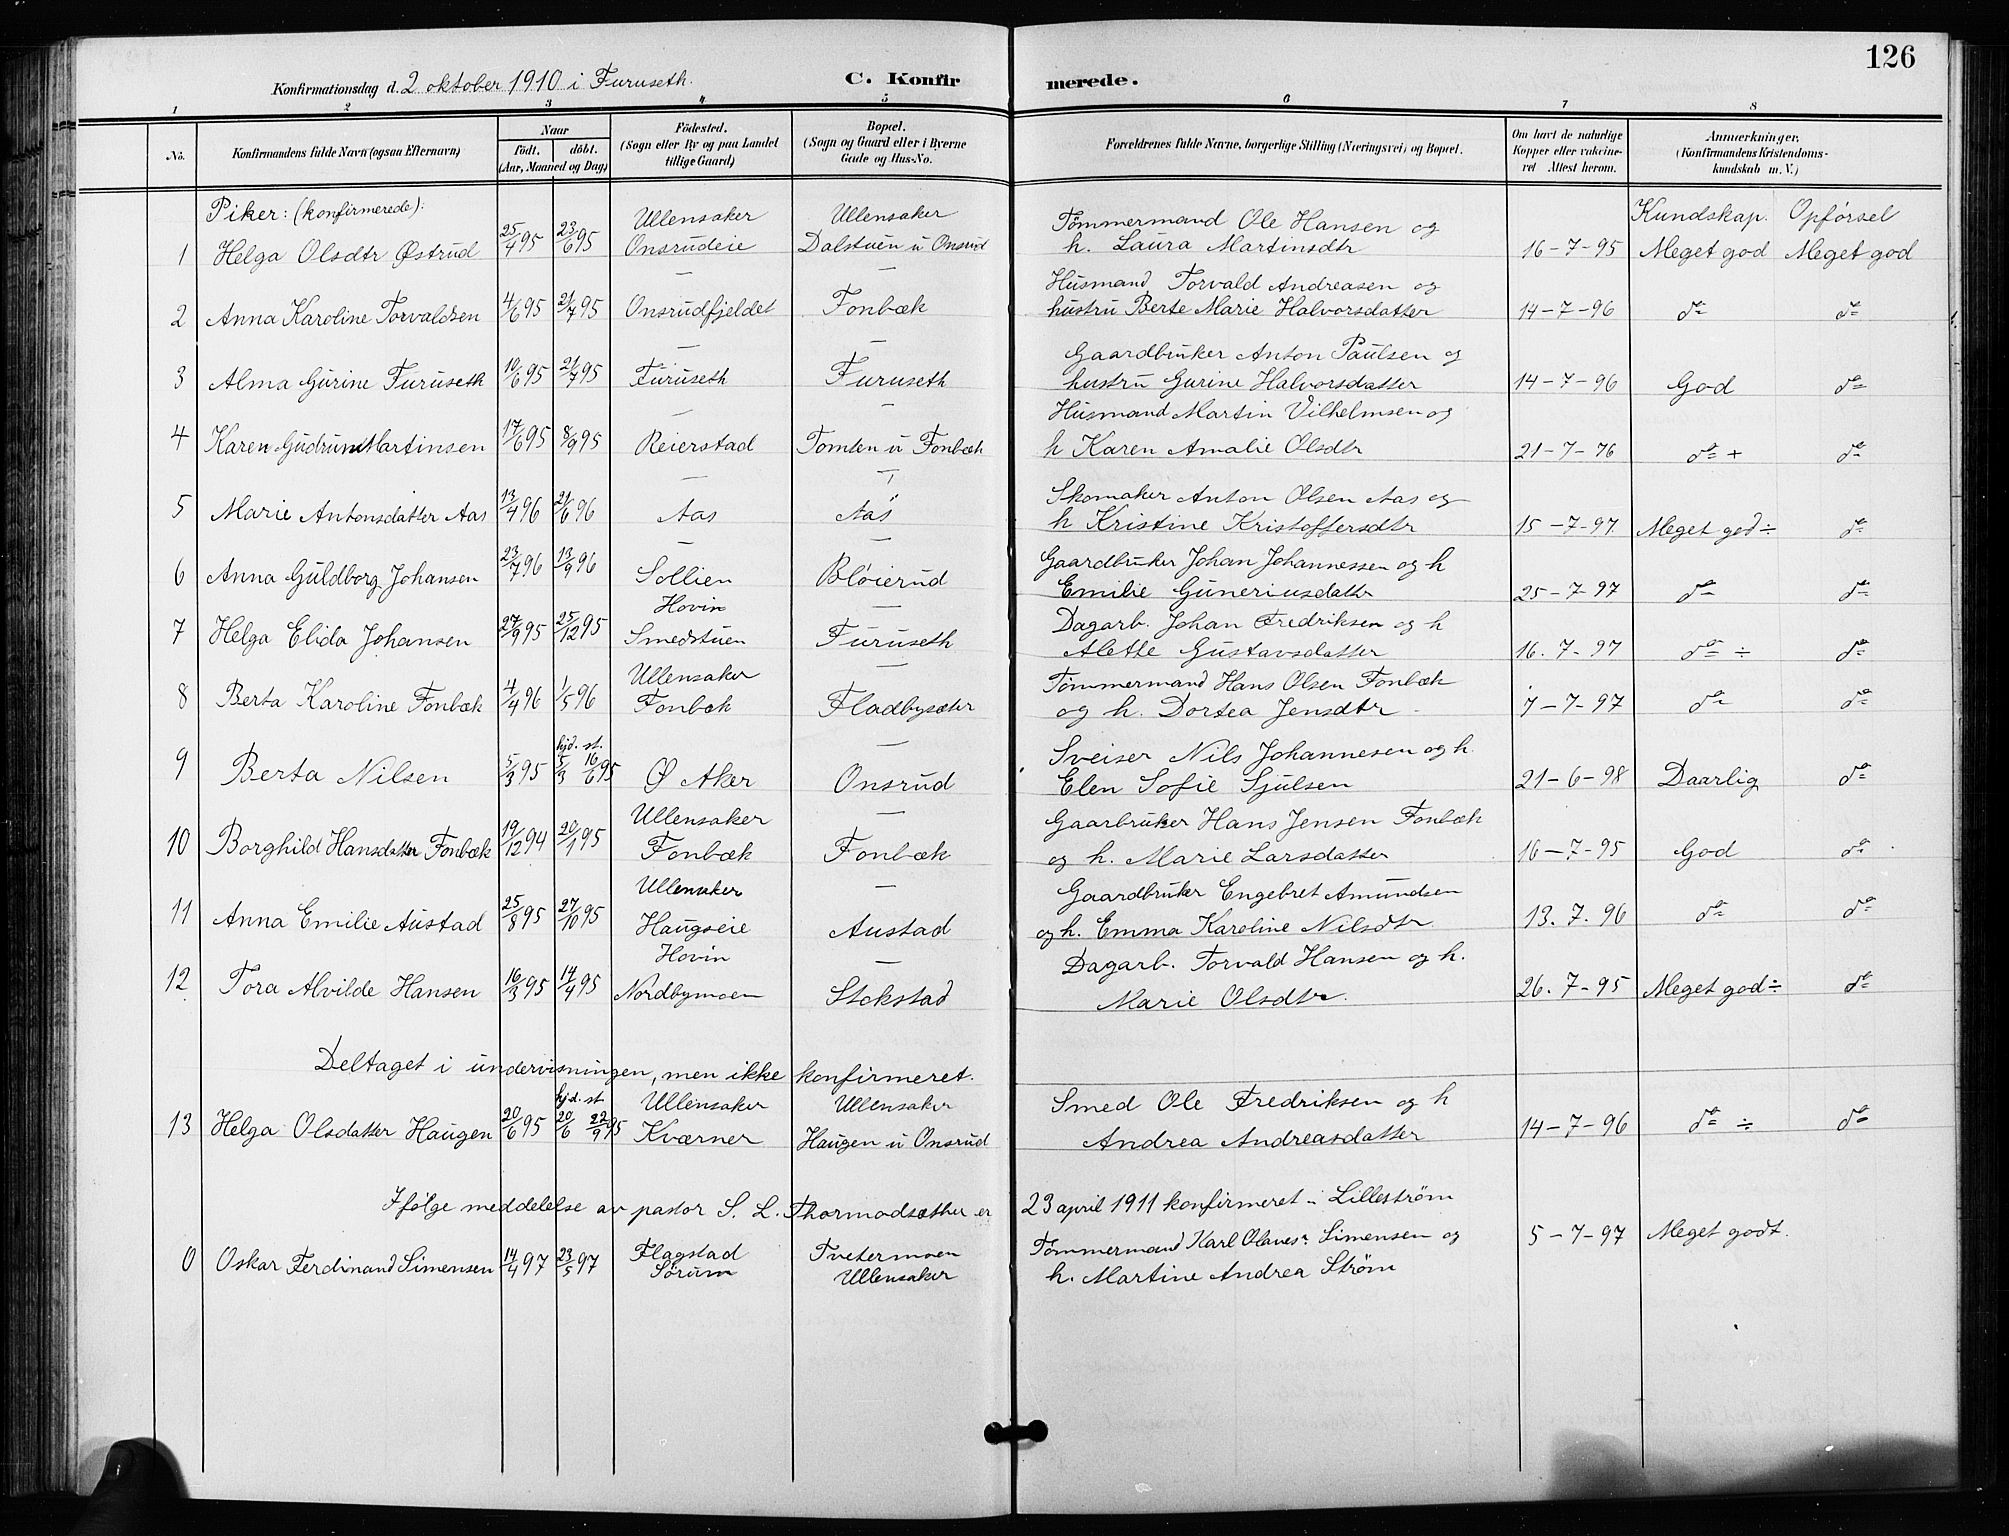 126
Konfirmationsdag d. 2 oktober 1910 i Furuseth. C. Konfirmerede.
1 2 3 4 5 6 7 8
No. Konfirmandens fulde Navn (ogsaa Efternavn) Naar født. døbt. (Aar, Maaned og Dag) Fødested. (Sogn eller By og paa Landet tillige Gaard) Bopæl. (Sogn og Gaard eller i Byerne Gade og Hus-No. Forældrenes fulde Navne, borgerlige Stilling (Næringsvei) og Bopæl. Om havt de naturlige Kopper eller vakcineret Attest herom. Anmærkninger, (Konfirmandens Kristendomskundskab m. V.)
Piker: (konfirmerede): Ullensaker Ullensaker Tømmermand Ole Hansen og Kundskap. Opførsel
1 Helga Olsdtr Østrud 25/4 95 23/6 95 Onsrudeie Dalstuen u Onsrud h. Laura Martinsdtr 16-7-95 Meget god Meget god
— — Husmand Torvald Andreasen og
2 Anna Karoline Torvaldsen 4/6 95 21/7 95 Onsrudfjeldet Fonbæk hustru Berte Marie Halvorsdatter 14-7-96 do do
— — Gaardbruker Anton Paulsen og
3 Alma Gurine Furuseth 10/6 95 21/7 95 Furuseth Furuseth hustru Gurine Halvorsdatter 14-7-96 God do
— — Husmand Martin Vilhelmsen og
4 Karen Gudrun Martinsen 17/6 95 8/9 95 Reierstad Tomten u Fonbæk h Karen Amalie Olsdtr 21-7-76 do + do
— — Skomaker Anton Olsen Aas og
5 Marie Antonsdatter Aas 13/4 96 21/6 96 Aas Aas h Kristine Kristoffersdtr 15-7-97 Meget god ÷ do
— — Gaardbruker Johan Johannessen og h
6 Anna Guldborg Johansen 23/7 96 13/9 96 Sollien Bløierud Emilie Guneriusdatter 25-7-97 do do
Hovin — Dagarb. Johan Fredriksen og h
7 Helga Elida Johansen 27/9 95 25/12 95 Smedstuen Furuseth Alette Gustavsdatter 16.7-97 do ÷ do
Ullensaker — Tømmermand Hans Olsen Fonbæk
8 Berta Karoline Fonbæk 4/4 96 1/5 96 Fonbæk Fladbysæter og h. Dortea Jensdtr 7-7-97 do do
hjd. st. — Sveiser Nils Johannesen og h.
9 Berta Nilsen 5/3 95 5/3 16/6 95 Ø Aker Onsrud Elen Sofie Sjulsen 21-6-98 Daarlig do
Ullensaker — Gaarbruker Hans Jensen Fonbæk
10 Borghild Hansdatter Fonbæk 19/12 94 20/1 95 Fonbæk Fonbæk og h. Marie Larsdatter 16-7-95 God do
Ullensaker — Gaardbruker Engebret Amundsen
11 Anna Emilie Austad 25/8 95 27/10 95 Haugseie Austad og h. Emma Karoline Nilsdtr 13.7.96 do do
Hovin — Dagarb. Torvald Hansen og h.
12 Tora Alvilde Hansen 16/3 95 14/4 95 Nordbymoen Stokstad Marie Olsdtr. 26.7-95 Meget god ÷ do
Deltaget i undervisningen, men ikke konfirmeret.
hjd. st Ullensaker Ullensaker Smed Ole Fredriksen og h
13 Helga Olsdatter Haugen 20/6 95 20/6 22/9 95 Kværner Haugen u Onsrud Andrea Andreasdatter 14-7-96 do ÷ do
Ifølge meddelelse av pastor S. L. Thormodsæther er 23 april 1911 konfirmeret i Lillestrøm
0 Oskar Ferdinand Simensen 14/4 97 23/5 97 Flagstad Tvetermoen Tømmermand Karl Simensen og 5-7-97 Meget godt.
Sørum Ullensaker h. Martine Andrea Strøm